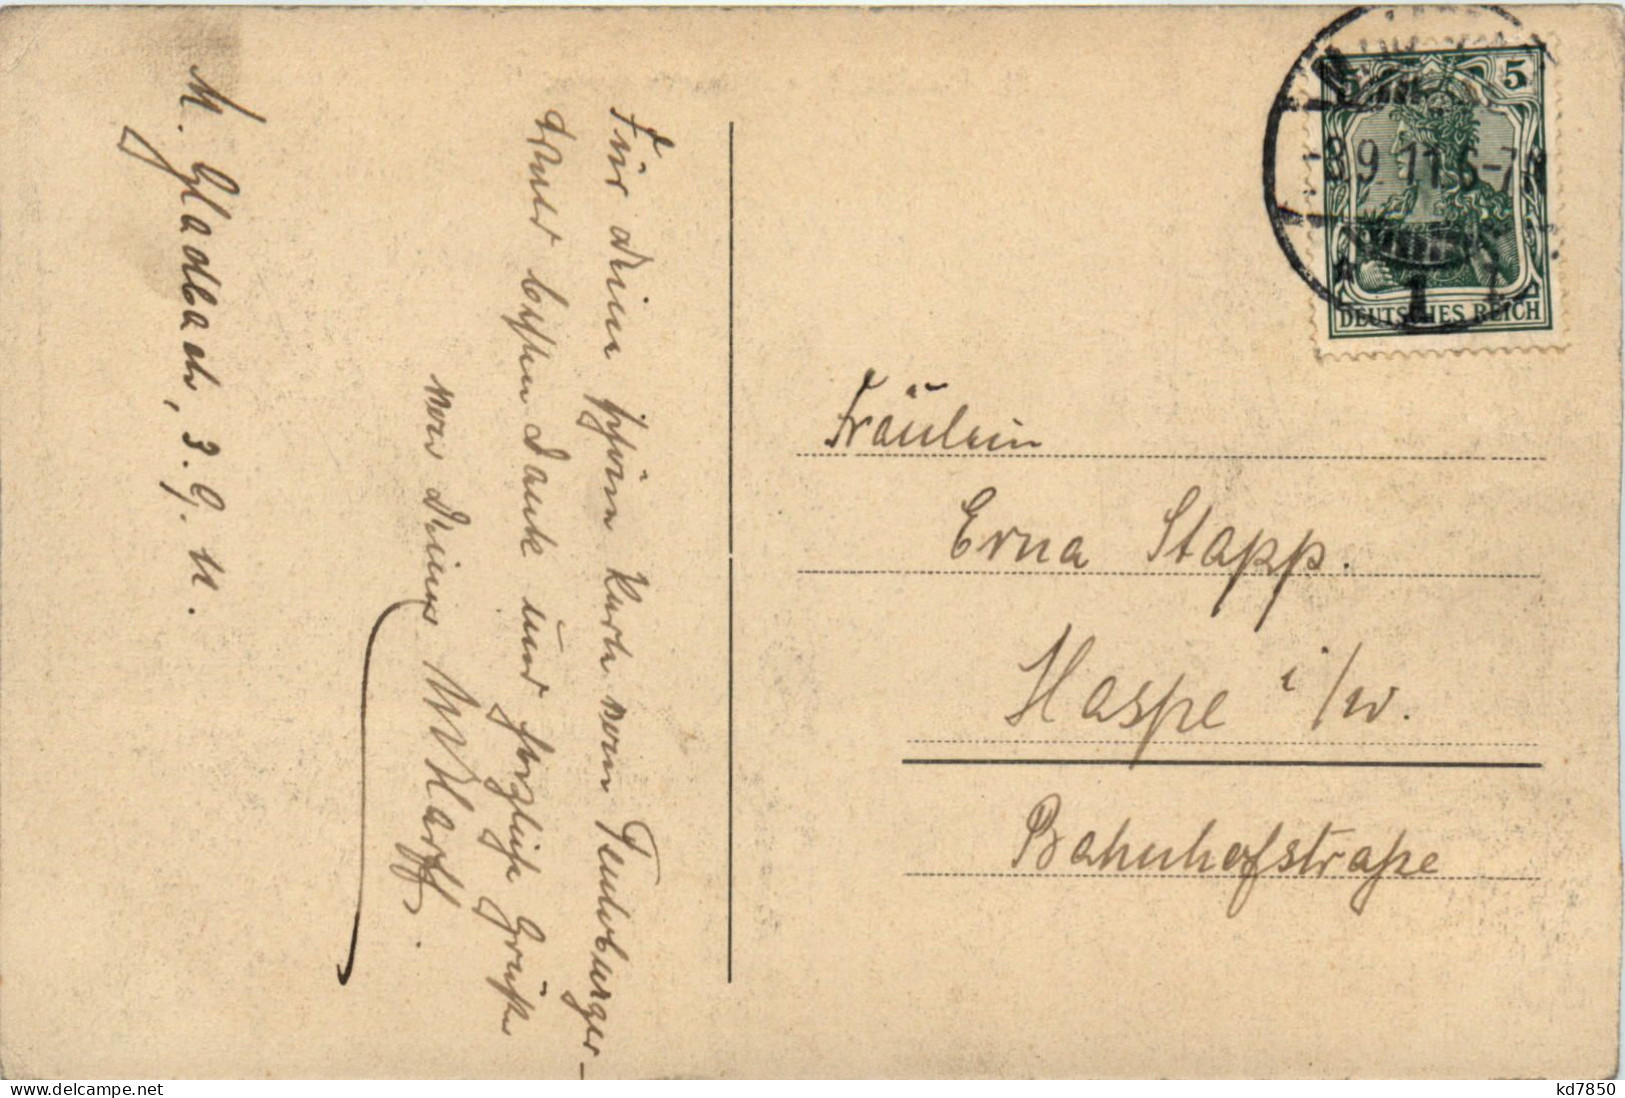 M. Gladbach, 3. 9. 11.
Für deine schöne Karte vom Teutoburger-
besten Dank und herzliche Grüße
von deiner
Fräulein
Erna Stapp.
Haspe i/w.
Bahnhofstraße
5 5
DEUTSCHES REICH
9.11.6-7
1
www.delcampe.net
kd7850